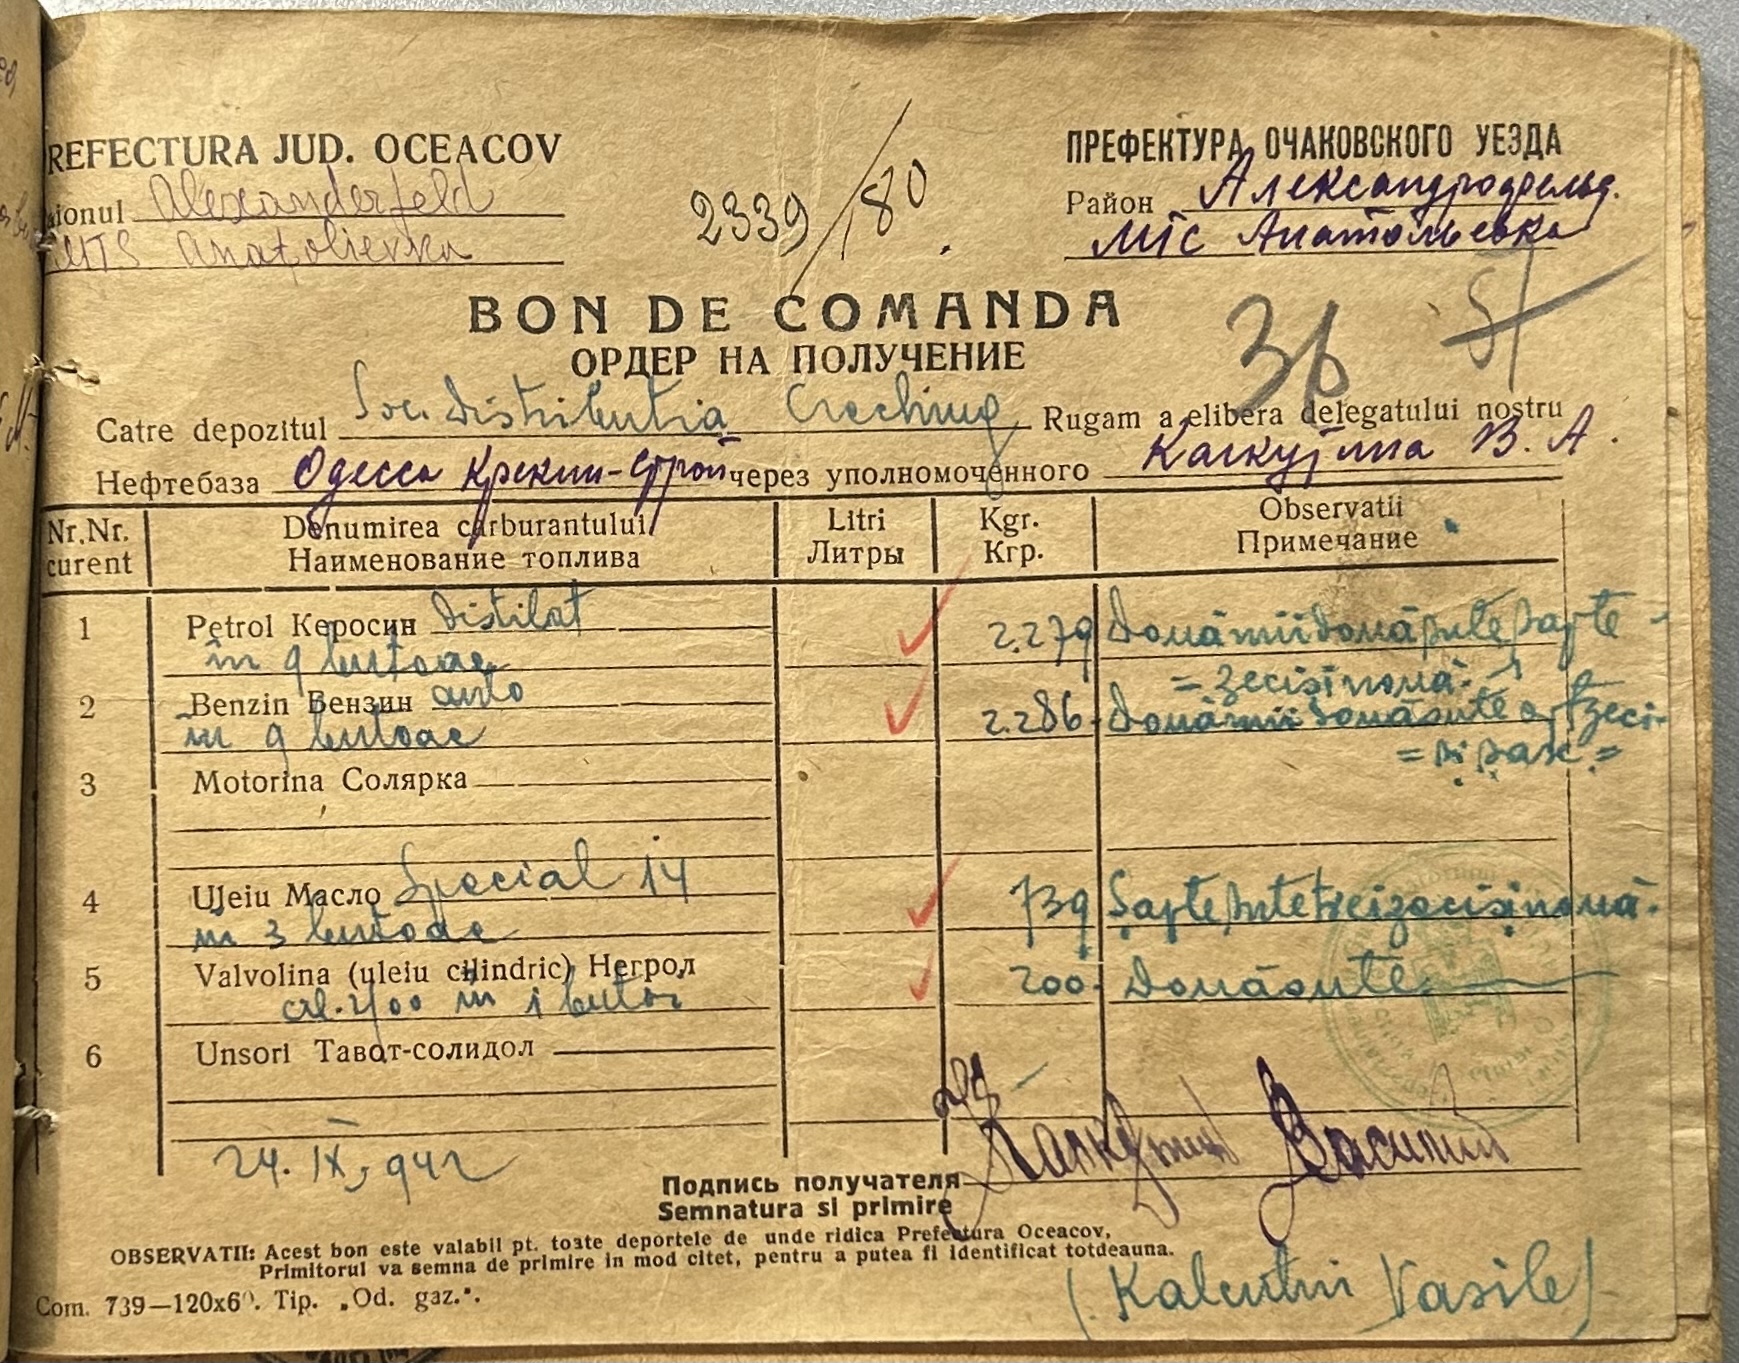 REFECTURA JUD. OCEACOV
ПРЕФЕКТУРА ОЧАКОВСКОГО УЕЗДА
aionul Alexanderfeld
2339/180.
Район Александрофельд.
MTS Anatolievka
МТС Анатольевка
BON DE COMANDA
36
51
ОРДЕР НА ПОЛУЧЕНИЕ
Catre depozitul Soc. Distributia Creching Rugam a elibera delegatului nostru
Нефтебаза Одесса Крекин-Строй через уполномоченного В. А.
Nr. Nr. curent
Denumirea carburantului
Litri
Kgr.
Observatii
Наименование топлива
Литры
Кгр.
Примечание
1 Petrol Керосин Distilat 2.279 Douămiidouăsuteșapte-
în 9 butoae =zecișinouă.
2 Benzin Бензин auto 2.286.- Douămiidouăsuteoptzeci-
în 9 butoae =și șase=
3 Motorina Солярка
4 Uleiu Масло Special 14 739 Șaptesutetreizecișinouă.
în 3 butoae
5 Valvolina (uleiu cilindric) Негрол 200.- Douăsute
în 1 butoi
6 Unsori Тавот-солидол
24. IX, 942
Подпись получателя Василий
Semnatura si primire
OBSERVATII: Acest bon este valabil pt. toate deportele de unde ridica Prefectura Oceacov,
Primitorul va semna de primire in mod citet, pentru a putea fi identificat totdeauna.
(Kalcutin Vasile)
Com. 739—120x60. Tip. „Od. gaz.".